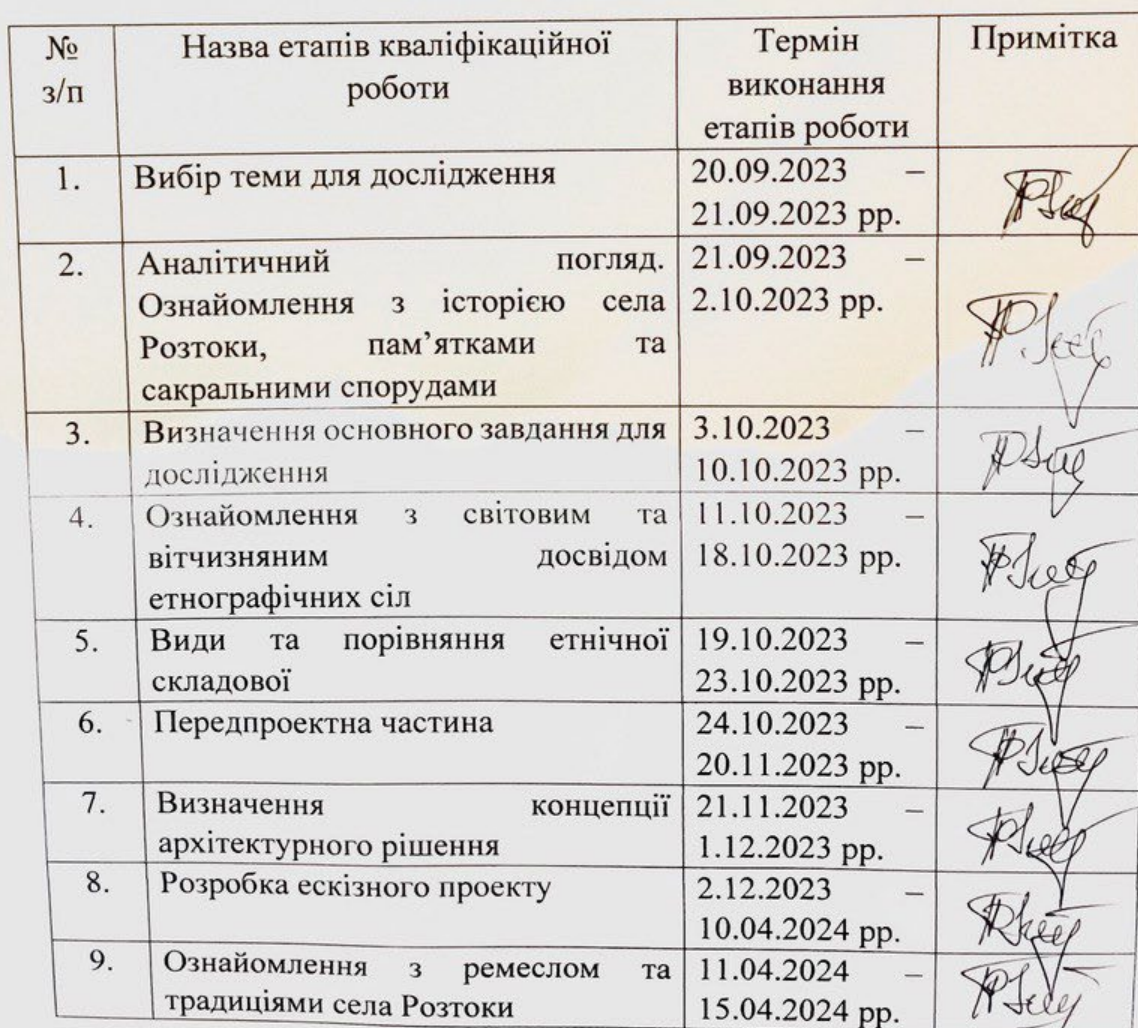 № з/п
Назва етапів кваліфікаційної роботи
Термін виконання етапів роботи
Примітка
1.
Вибір теми для дослідження
20.09.2023 –
21.09.2023 рр.
2.
Аналітичний погляд.
Ознайомлення з історією села
Розтоки, пам’ятками та
сакральними спорудами
21.09.2023 –
2.10.2023 рр.
3.
Визначення основного завдання для
дослідження
3.10.2023 –
10.10.2023 рр.
4.
Ознайомлення з світовим та
вітчизняним досвідом
етнографічних сіл
11.10.2023 –
18.10.2023 рр.
5.
Види та порівняння етнічної
складової
19.10.2023 –
23.10.2023 рр.
6.
Передпроектна частина
24.10.2023 –
20.11.2023 рр.
7.
Визначення концепції
архітектурного рішення
21.11.2023 –
1.12.2023 рр.
8.
Розробка ескізного проекту
2.12.2023 –
10.04.2024 рр.
9.
Ознайомлення з ремеслом та
традиціями села Розтоки
11.04.2024 –
15.04.2024 рр.